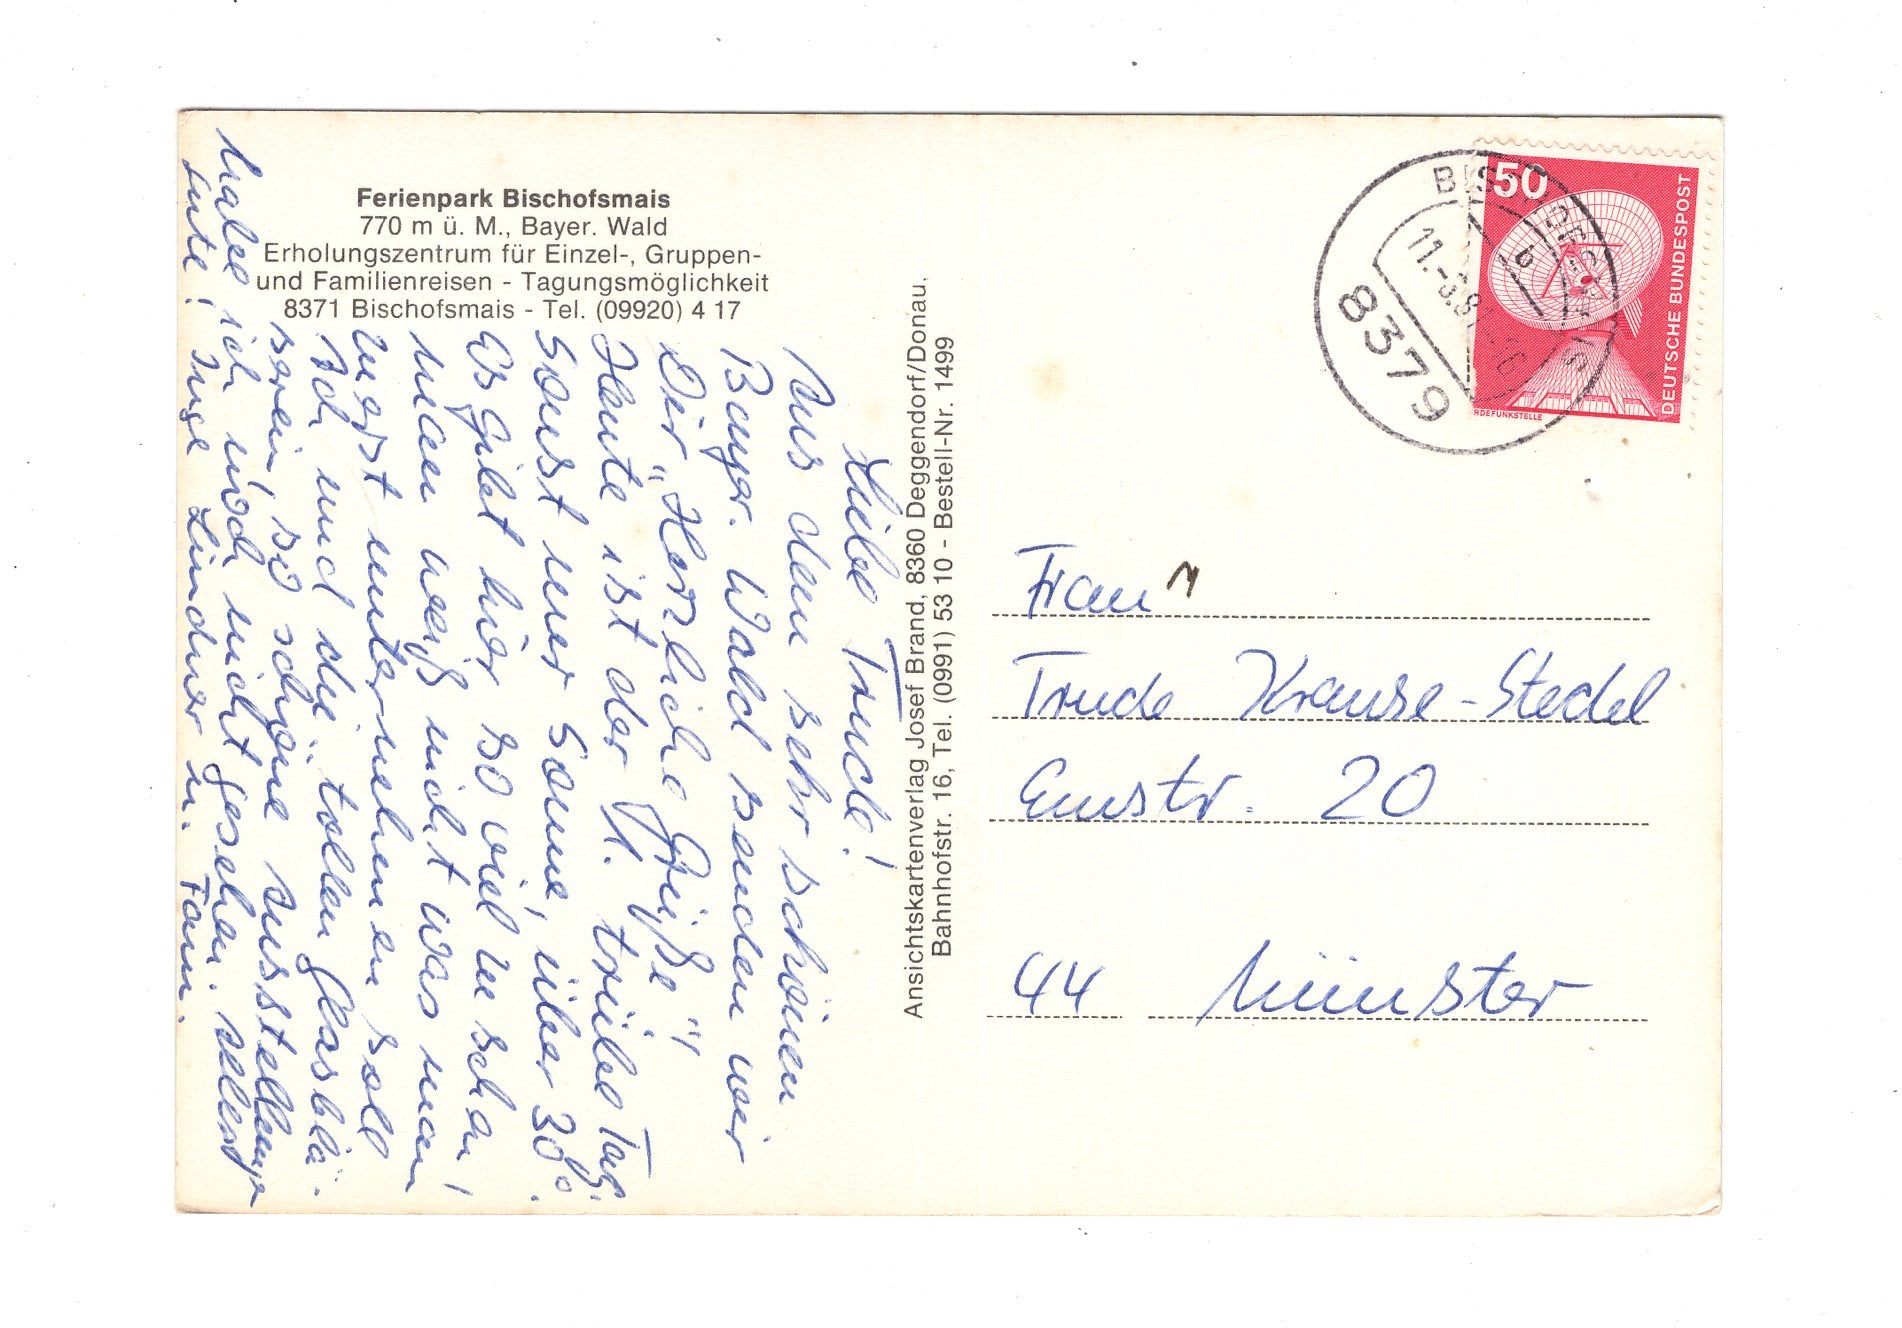 Ferienpark Bischofsmais
770 m ü. M., Bayer. Wald
Erholungszentrum für Einzel-, Gruppen-
und Familienreisen - Tagungsmöglichkeit
8371 Bischofsmais - Tel. (09920) 4 17
Liebe Trude!
Aus dem sehr schönen
Bayer. Wald senden wir
Dir "Herzliche Grüße"!
Heute ist der 1. trübe Tag,
sonst nur Sonne, über 30°.
Es gibt hier so viel zu sehen!
Man weiß nicht was man
zuerst unternehmen soll
Ich und die tollen Glasblä-
serein! So schöne Ausstellunge
habe ich noch nicht gesehen. Allerg
Gute! Inge Lindner u. Fam.
Ansichtskartenverlag Josef Brand, 8360 Deggendorf/Donau,
Bahnhofstr. 16, Tel. (0991) 53 10 - Bestell-Nr. 1499
50
DEUTSCHE BUNDESPOST
RDEFUNKSTELLE
BISCHOFSMAIS
b
8379
Frau
Trude Krause-Stedel
Emstr. 20
44 Münster